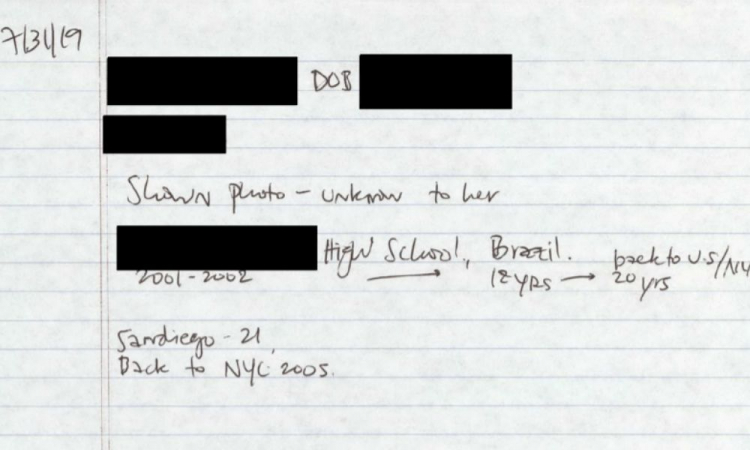 7/31/19
DOB
Shown photo - unknown to her
High School, Brazil. back to U.S/NY
2001-2002 18 yrs → 20 yrs
Sandiego - 21,
Back to NYC 2005.